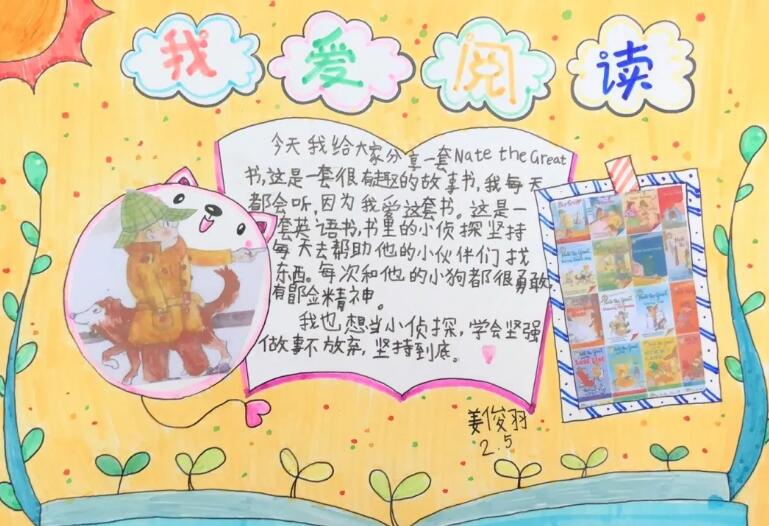 我爱阅读
今天我给大家分享一套Nate the Great
书,这是一套很有趣的故事书,我每天
都会听,因为我爱这套书。这是一
套英语书,书里的小侦探坚持
每天去帮助他的小伙伴们找
东西。每次和他的小狗都很勇敢,
有冒险精神。
我也想当小侦探,学会坚强
做事不放弃,坚持到底。
姜俊羽
2.5